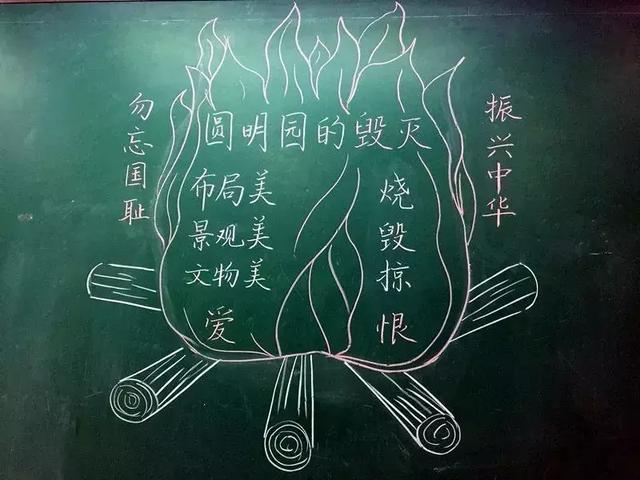 圆明园的毁灭
勿忘国耻
振兴中华
布局美
景观美
文物美
爱
烧
毁
掠
恨